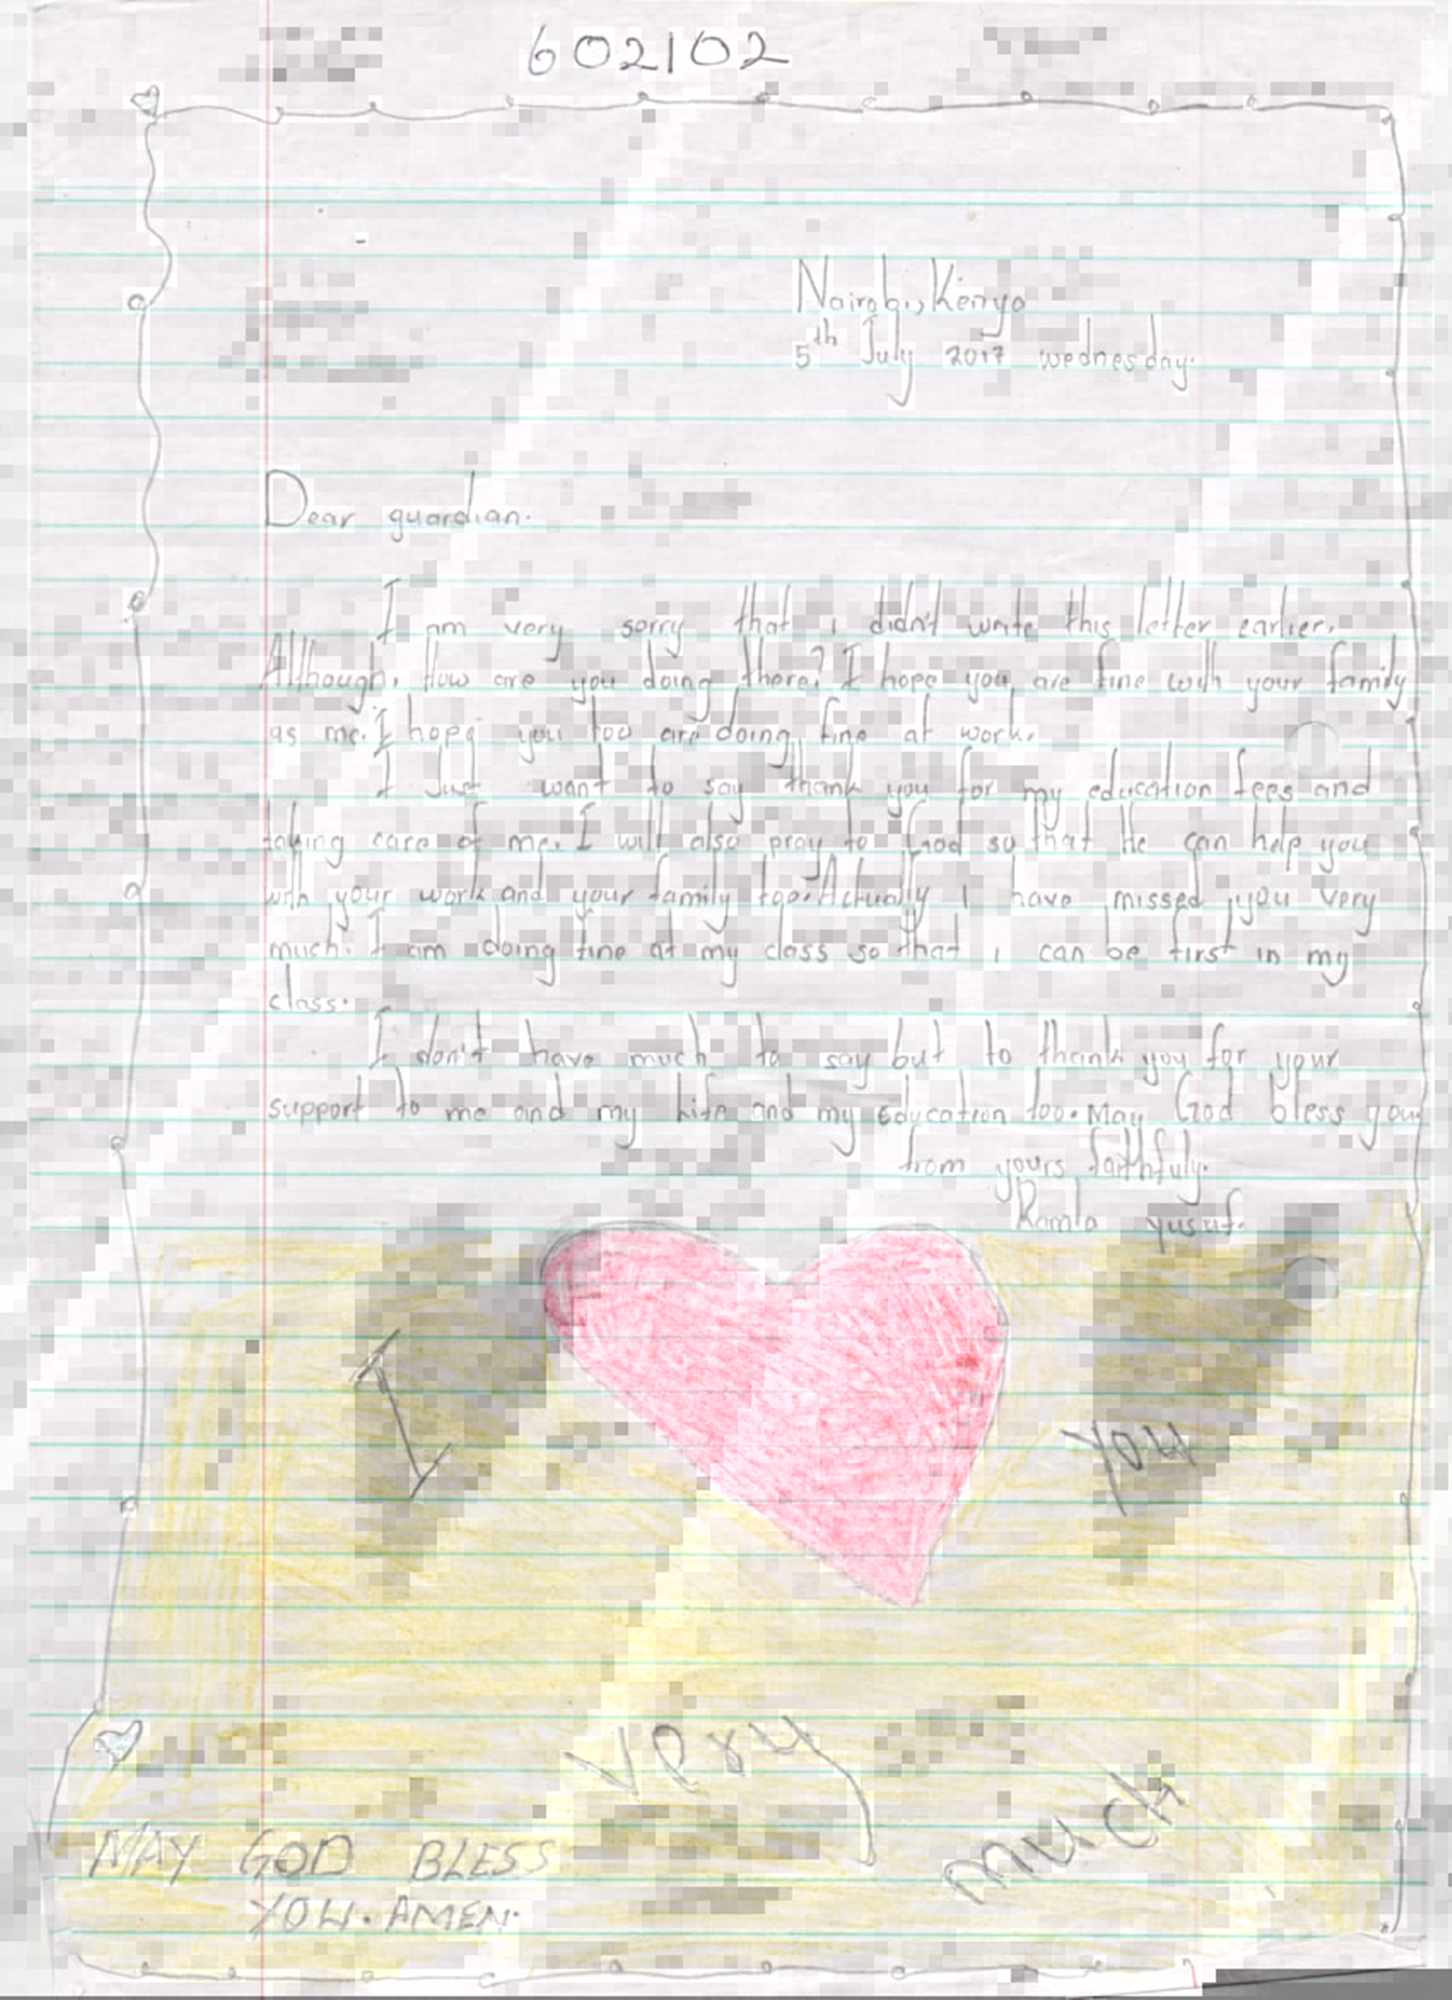 602102
Nairobi, Kenya
5th July 2017 wednesday.
Dear guardian.
I am very sorry that i didn't write this letter earlier.
Although, How are you doing there? I hope you are fine with your family
as me. I hope you too are doing fine at work.
I Just want to say thank you for my education fees and
taking care of me. I will also pray to God so that He can help you
with your work and your family too. Actually i have missed you very
much. I am doing fine at my class so that i can be first in my
class.
I don't have much to say but to thank you for your
support to me and my life and my Education too. May God bless you
from yours faithfuly.
Ramla yusuf.
I you
very much
MAY GOD BLESS
YOU. AMEN.